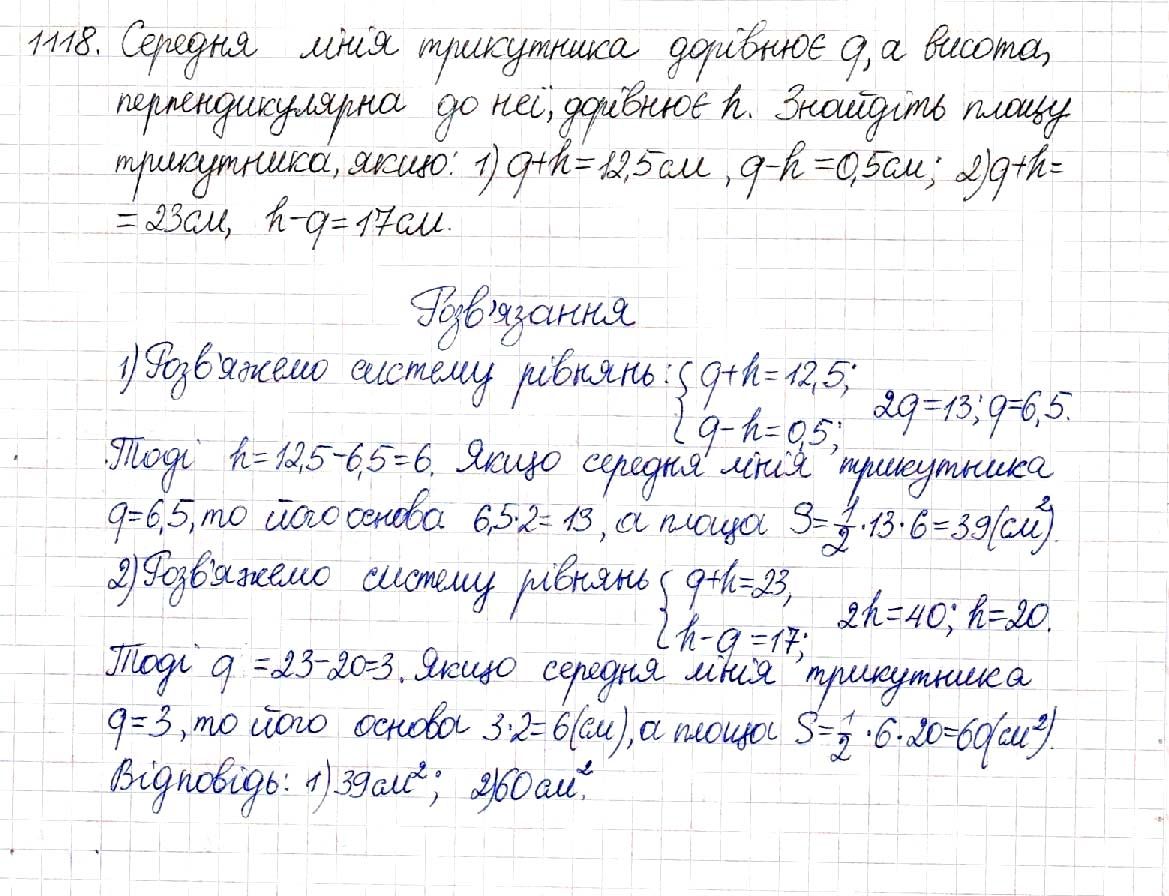 1118. Середня лінія трикутника дорівнює q, а висота,
перпендикулярна до неї, дорівнює h. Знайдіть площу
трикутника, якщо: 1) q+h=12,5см, q-h=0,5см; 2) q+h=
=23см, h-q=17см.
Розв'язання
1) Розв'яжемо систему рівнянь: { q+h=12,5; q-h=0,5; 2q=13; q=6,5.
Тоді h=12,5-6,5=6. Якщо середня лінія трикутника
q=6,5, то його основа 6,5·2=13, а площа S=1/2·13·6=39(см²).
2) Розв'яжемо систему рівнянь { q+h=23, h-q=17; 2h=40; h=20.
Тоді q=23-20=3. Якщо середня лінія трикутника
q=3, то його основа 3·2=6(см), а площа S=1/2·6·20=60(см²).
Відповідь: 1) 39см²; 2) 60см².